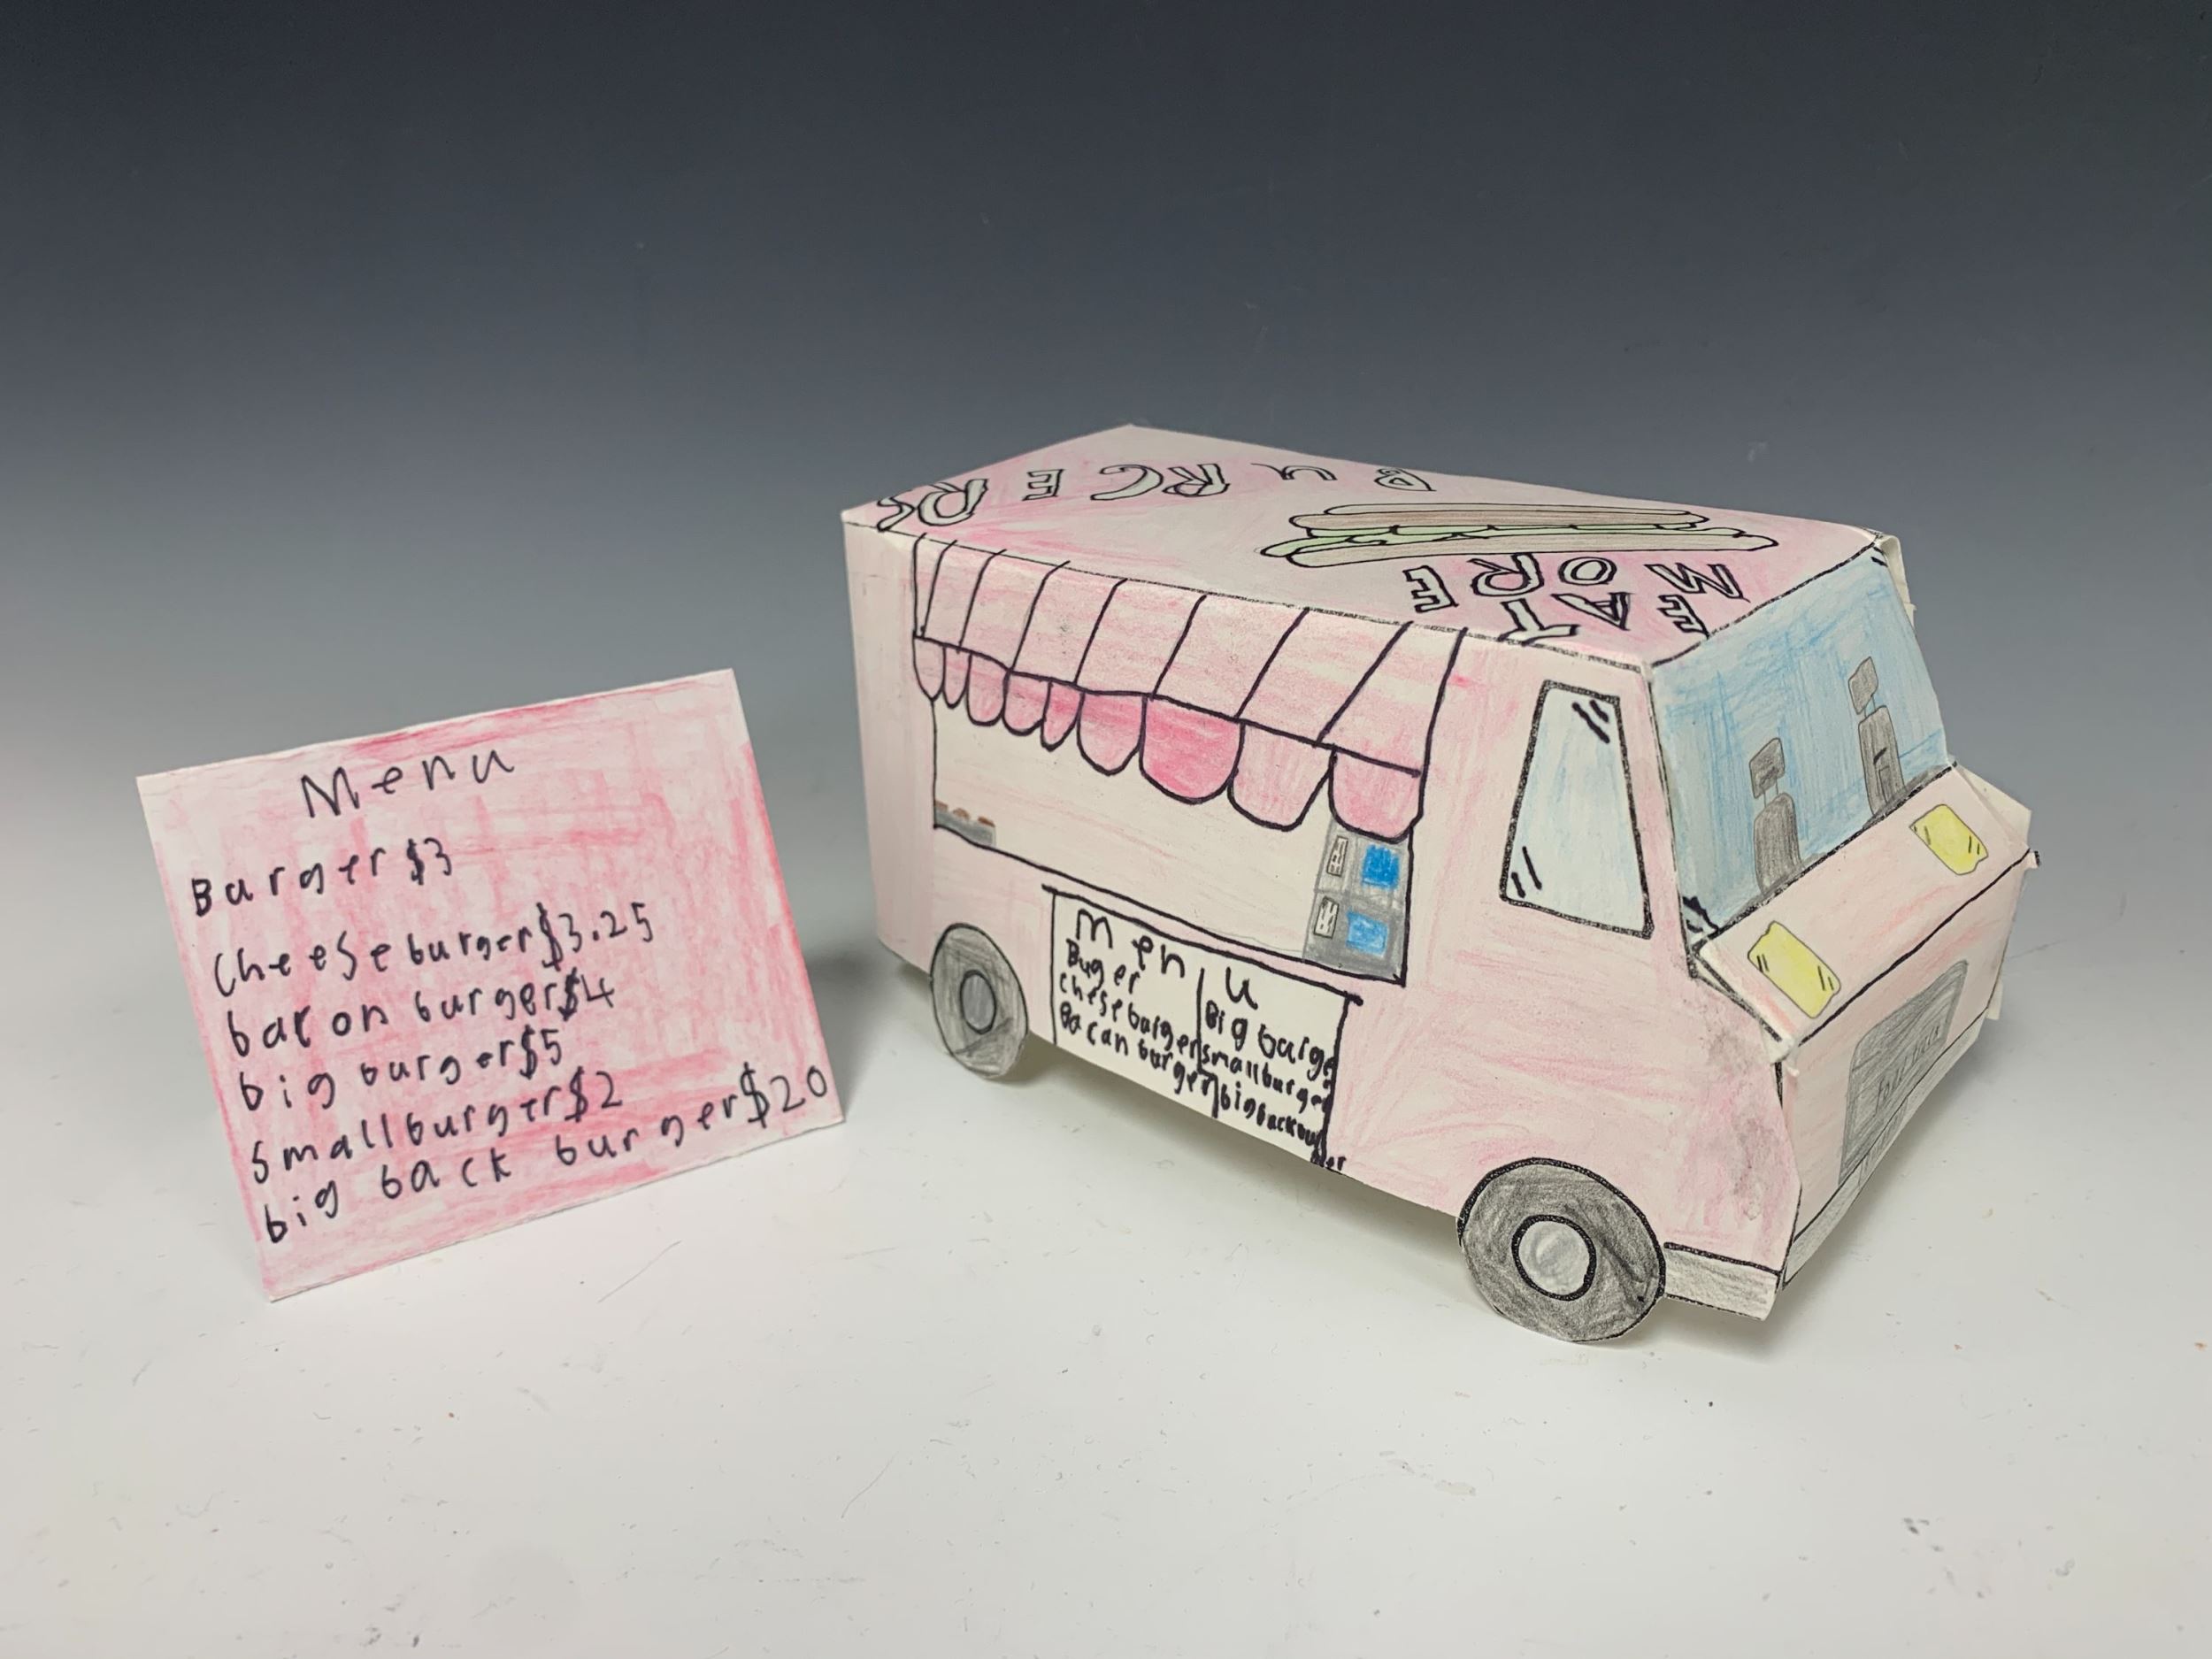 Menu
Burger $3
Cheeseburger $3.25
bacon burger $4
big burger $5
small burger $2
big back burger $20
EAT
MORE
BURGERS
Menu
Buger
Cheseburger
Bacan burger
Big burge
small burger
big back burger